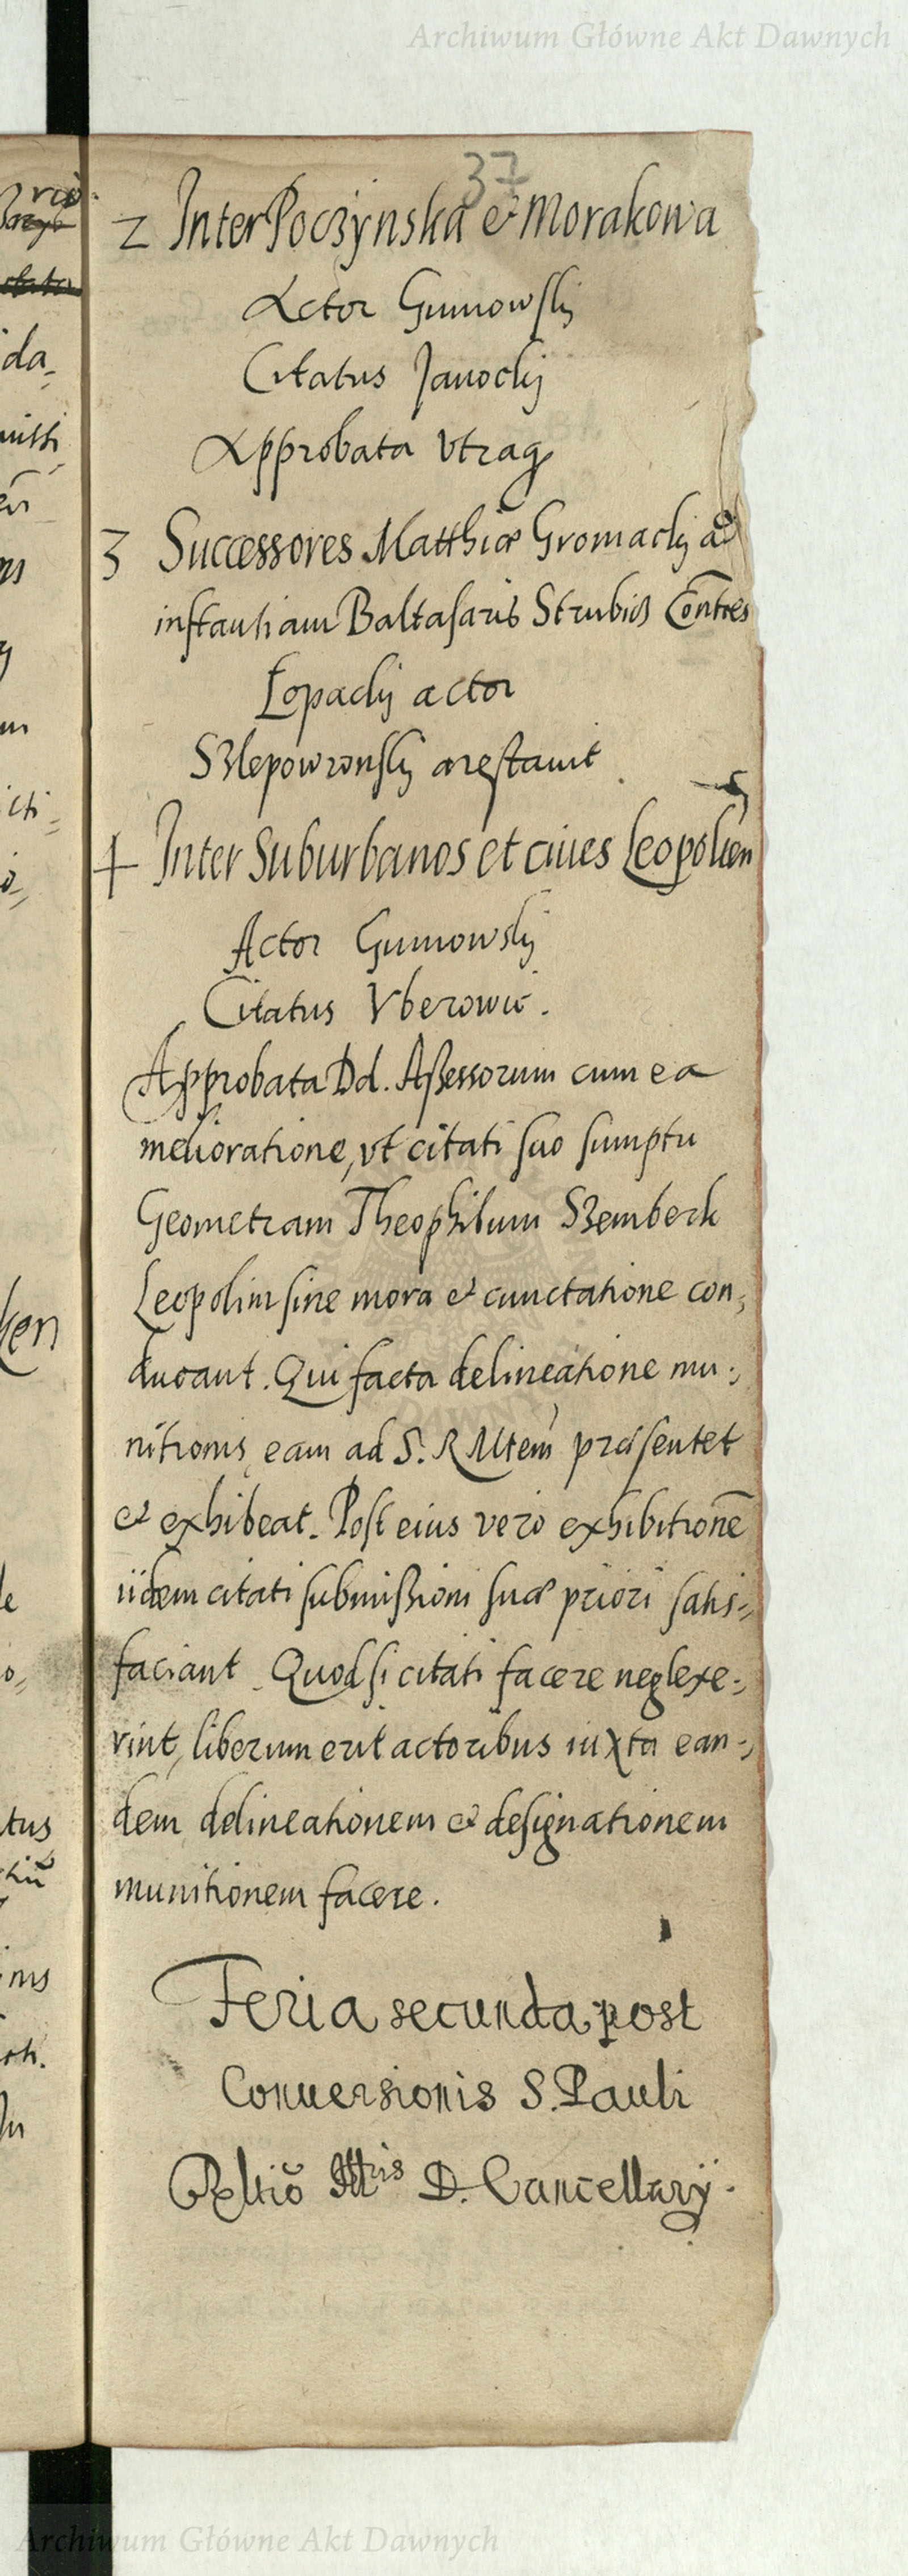 Archiwum Główne Akt Dawnych
37
2 Inter Poczynska et Morakowa
Actor Gumowskj
Citatus Janockj
Approbata vtraq
3 Successores Matthiæ Gromackj ad
instantiam Baltasaris Strubicz Contres
Lopackj actor
Szlepowronskj arestauit
4 Inter Suburbanos et ciues Leopolien
Actor Gumowskj
Citatus Vberowic.
Approbata Dd. Assessorum cum ea
melioratione, vt citati suo sumptu
Geometram Theophilum Szemberk
Leopolim sine mora et cunctatione con,
ducant. Qui facta delineatione mu,
nitionis eam ad S. R Mtem præsentet
et exhibeat. Post eius vero exhibitionē
iidem citati submissioni suæ priori satis,
faciant. Quod si citati facere neglexe,
rint, liberum erit actoribus iuxta ean,
dem delineationem et designationem
munitionem facere.
Feria secunda post
Conuersionis S. Pauli
D. Cancellarij.
Archiwum Główne Akt Dawnych